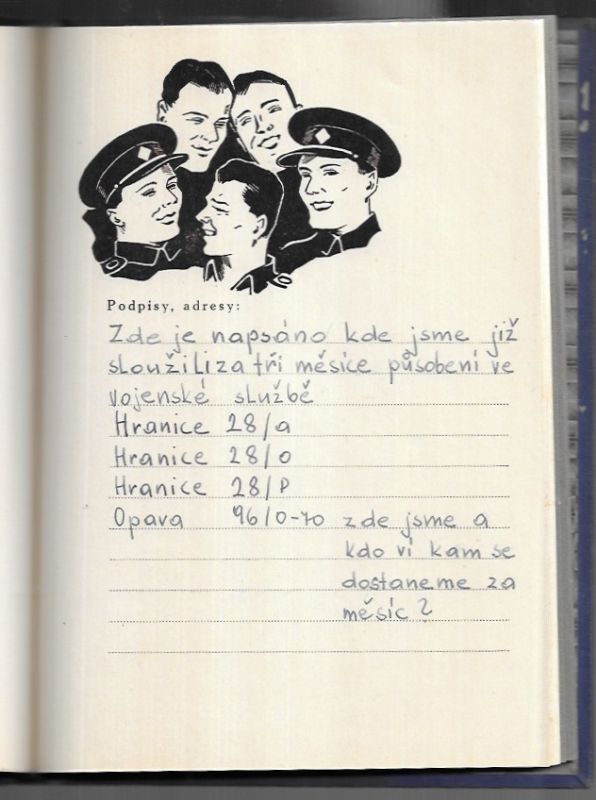 Podpisy, adresy:
Zde je napsáno kde jsme již
sloužili za tři měsíce působení ve
vojenské službě
Hranice 28/a
Hranice 28/o
Hranice 28/p
Opava 96/o-70 zde jsme a
kdo ví kam se
dostaneme za
měsíc?